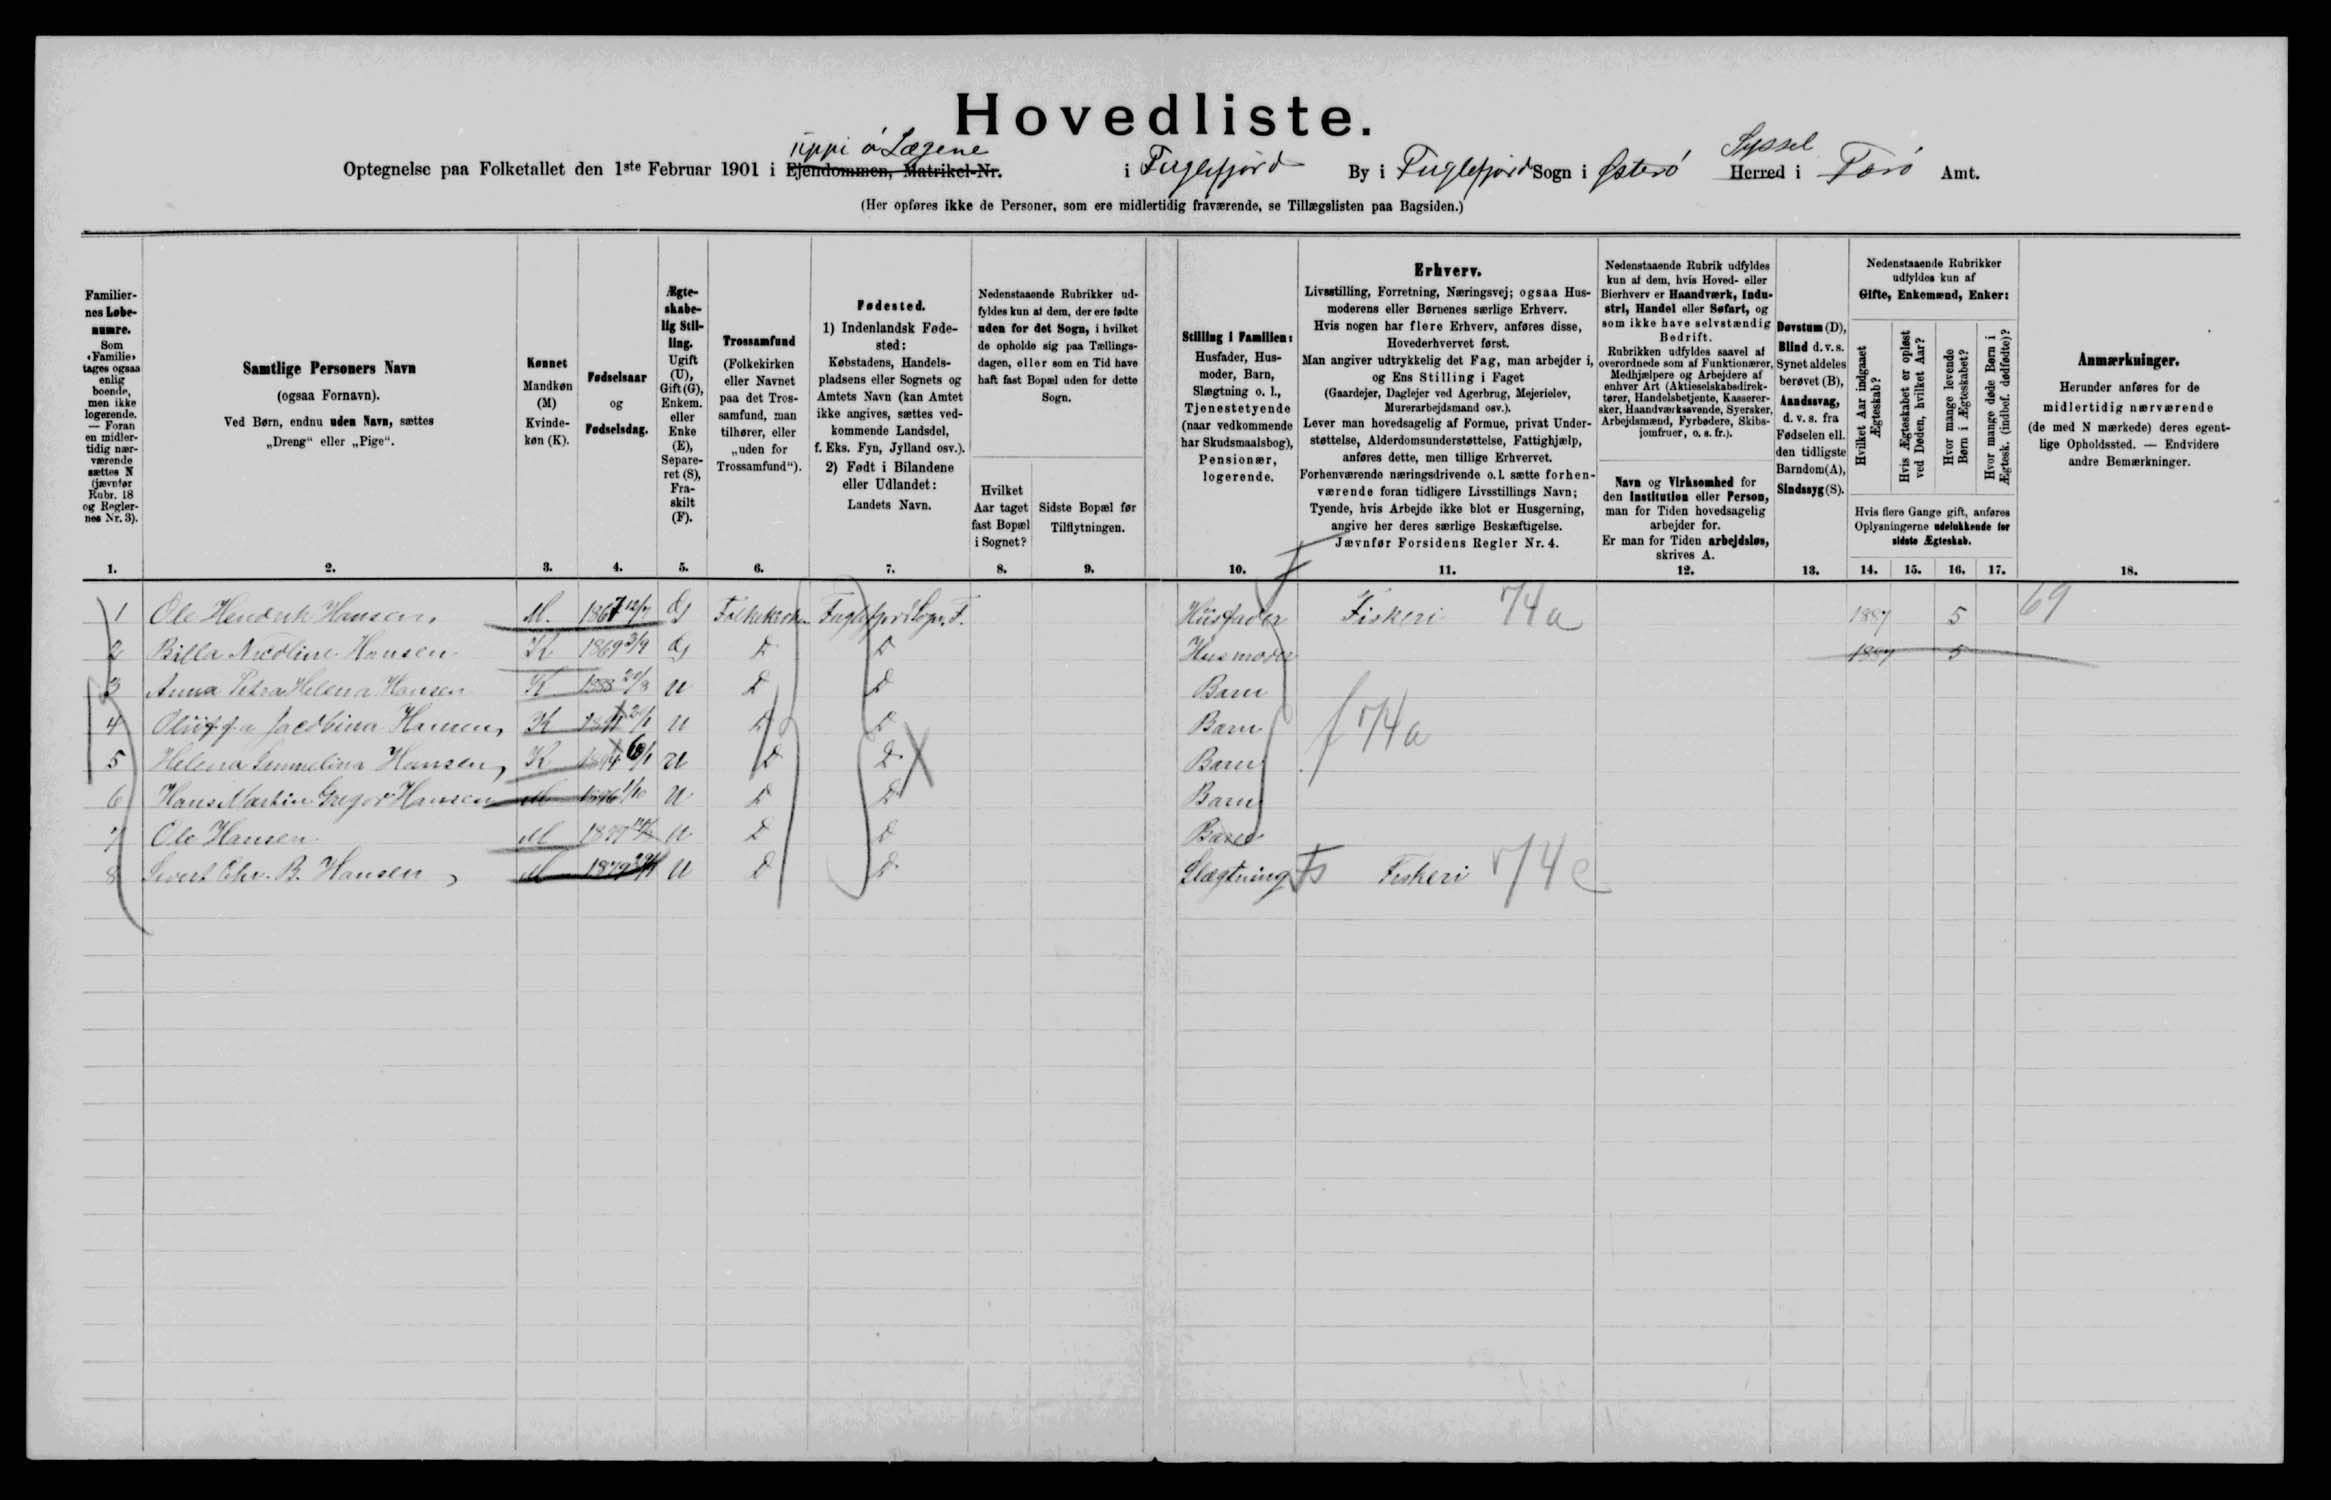 Hovedliste.
uppi á Lægene
Syssel
Optegnelse paa Folketallet den 1ste Februar 1901 i Ejendommen, Matrikel-Nr. i Fuglefjord By i Fuglefjord Sogn i Østerö Herred i Færö Amt.
(Her opføres ikke de Personer, som ere midlertidig fraværende, se Tillægslisten paa Bagsiden.)
Familier-
nes Løbe-
numre.
Som
«Familie»
tages ogsaa
enlig
boende,
men ikke
logerende.
— Foran
en midler-
tidig nær-
værende
sættes N
(jævnfør
Rubr. 18
og Regler-
nes Nr. 3).
1.
Samtlige Personers Navn
(ogsaa Fornavn).
Ved Børn, endnu uden Navn, sættes
„Dreng“ eller „Pige“.
2.
Kønnet
Mandkøn
(M)
Kvinde-
køn (K).
3.
Fødselsaar
og
Fødselsdag.
4.
Ægte-
skabe-
lig Stil-
ling.
Ugift
(U),
Gift (G),
Enkem.
eller
Enke
(E),
Separe-
ret (S),
Fra-
skilt
(F).
5.
Trossamfund
(Folkekirken
eller Navnet
paa det Tros-
samfund, man
tilhører, eller
„uden for
Trossamfund“).
6.
Fødested.
1) Indenlandsk Føde-
sted:
Købstadens, Handels-
pladsens eller Sognets og
Amtets Navn (kan Amtet
ikke angives, sættes ved-
kommende Landsdel,
f. Eks. Fyn, Jylland osv.).
2) Født i Bilandene
eller Udlandet:
Landets Navn.
7.
Nedenstaaende Rubrikker ud-
fyldes kun af dem, der ere fødte
uden for det Sogn, i hvilket
de opholde sig paa Tællings-
dagen, eller som en Tid have
haft fast Bopæl uden for dette
Sogn.
Hvilket
Aar taget
fast Bopæl
i Sognet?
8.
Sidste Bopæl før
Tilflytningen.
9.
Stilling i Familien:
Husfader, Hus-
moder, Barn,
Slægtning o. l.,
Tjenestetyende
(naar vedkommende
har Skudsmaalsbog),
Pensionær,
logerende.
10.
Erhverv.
Livsstilling, Forretning, Næringsvej; ogsaa Hus-
moderens eller Børnenes særlige Erhverv.
Hvis nogen har flere Erhverv, anføres disse,
Hovederhvervet først.
Man angiver udtrykkelig det Fag, man arbejder i,
og Ens Stilling i Faget
(Gaardejer, Daglejer ved Agerbrug, Mejerielev,
Murerarbejdsmand osv.).
Lever man hovedsagelig af Formue, privat Under-
støttelse, Alderdomsunderstøttelse, Fattighjælp,
anføres dette, men tillige Erhvervet.
Forhenværende næringsdrivende o. l. sætte forhen-
værende foran tidligere Livsstillings Navn;
Tyende, hvis Arbejde ikke blot er Husgerning,
angive her deres særlige Beskæftigelse.
Jævnfør Forsidens Regler Nr. 4.
11.
Nedenstaaende Rubrik udfyldes
kun af dem, hvis Hoved- eller
Bierhverv er Haandværk, Indu-
stri, Handel eller Søfart, og
som ikke have selvstændig
Bedrift.
Rubrikken udfyldes saavel af
overordnede som af Funktionærer,
Medhjælpere og Arbejdere af
enhver Art (Aktieselskabsdirek-
tører, Handelsbetjente, Kasserer-
sker, Haandværkssvende, Syersker,
Arbejdsmænd, Fyrbødere, Skibs-
jomfruer, o. s. fr.).
Navn og Virksomhed for
den Institution eller Person,
man for Tiden hovedsagelig
arbejder for.
Er man for Tiden arbejdsløs,
skrives A.
12.
Døvstum (D),
Blind d. v. s.
Synet aldeles
berøvet (B),
Aandssvag,
d. v. s. fra
Fødselen ell.
den tidligste
Barndom (A),
Sindssyg (S).
13.
Nedenstaaende Rubrikker
udfyldes kun af
Gifte, Enkemænd, Enker:
Hvilket Aar indgaaet
Ægteskab?
Hvis Ægteskabet er opløst
ved Døden, hvilket Aar?
Hvor mange levende
Børn i Ægteskabet?
Hvor mange døde Børn i
Ægtesk. (indbef. dødfødte)?
Hvis flere Gange gift, anføres
Oplysningerne udelukkende for
sidste Ægteskab.
14. 15. 16. 17.
Anmærkninger.
Herunder anføres for de
midlertidig nærværende
(de med N mærkede) deres egent-
lige Opholdssted. — Endvidere
andre Bemærkninger.
18.
1 Ole Hendrik Hansen, M. 1867 12/7 G Folkekirken Fuglefjord Sogn. F. Husfader Fiskeri 74a 1887 5 69
2 Billa Nicoline Hansen K 1869 3/9 G D D Husmoder 1887 5
3 Anna Petra Helena Hansen K 1888 U D D Barn
4 Jacobina Hansen, K U D D Barn 74a
5 Helena Hansen, K U D D Barn
6 Hans Martin Gregor Hansen M 1896 1/10 U D D Barn
7 Ole Hansen M 1897 U D D Barn
8 Sivert Chr. B. Hansen, M 1879 U D D Slægtning Fs Fiskeri 74c